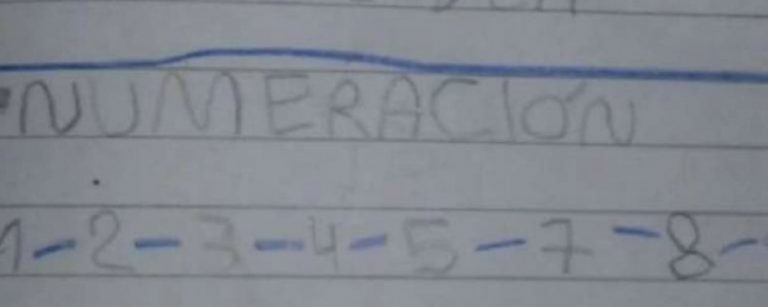 NUMERACIÓN
1-2-3-4-5-7-8-